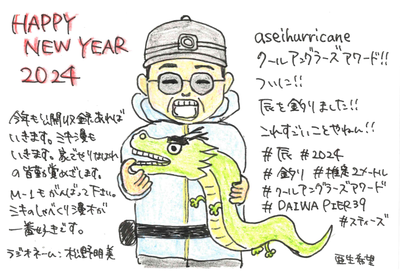 HAPPY
NEW YEAR
2024
今年も公開収録あれば
いきます。ミキ漫も
いきます。
の皆勤
M-1もがんばって下さい。
ミキのしゃべくり漫才が
一番好きです。
ラジオネーム:松野明美
aseihurricane
クールアングラーズアワード!!
ついに!!
辰を釣りました!!
これすごいことやねん!!
#辰 #2024
#釣り #推定2メートル
#クールアングラーズアワード
#DAIWA PIER39
#スティーズ
亜生希望